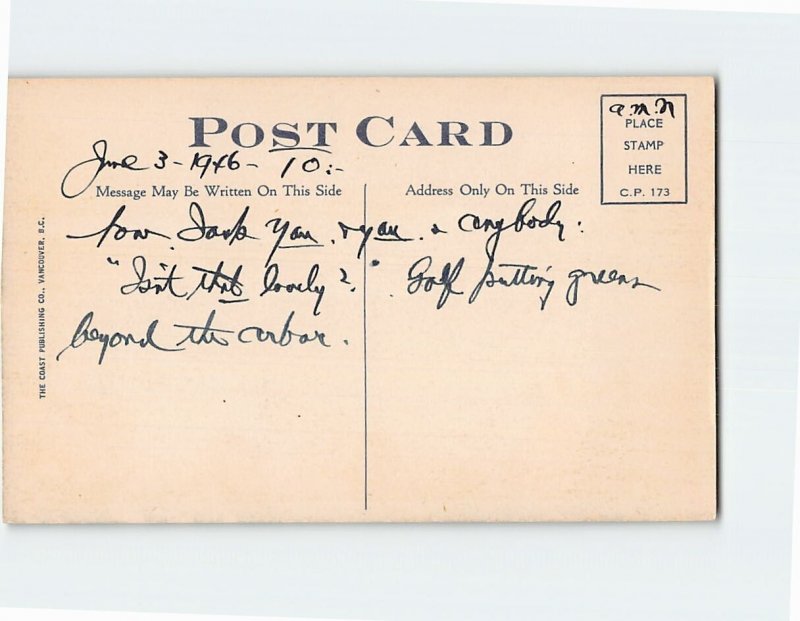 a.m.
PLACE
STAMP
HERE
C.P. 173
POST CARD
June 3 - 1946 - 10:-
Message May Be Written On This Side
Address Only On This Side
you, & you & anybody:
"Isn't this lovely?" Golf putting greens
beyond the arbor.
THE COAST PUBLISHING CO., VANCOUVER, B.C.